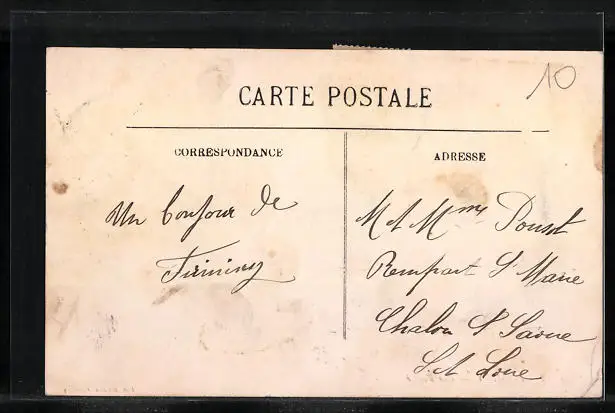 10
CARTE POSTALE
CORRESPONDANCE
ADRESSE
Un bonjour de
Firminy
M et Mme
Rempart St Marie
Chalon S Saone
S. et Loire